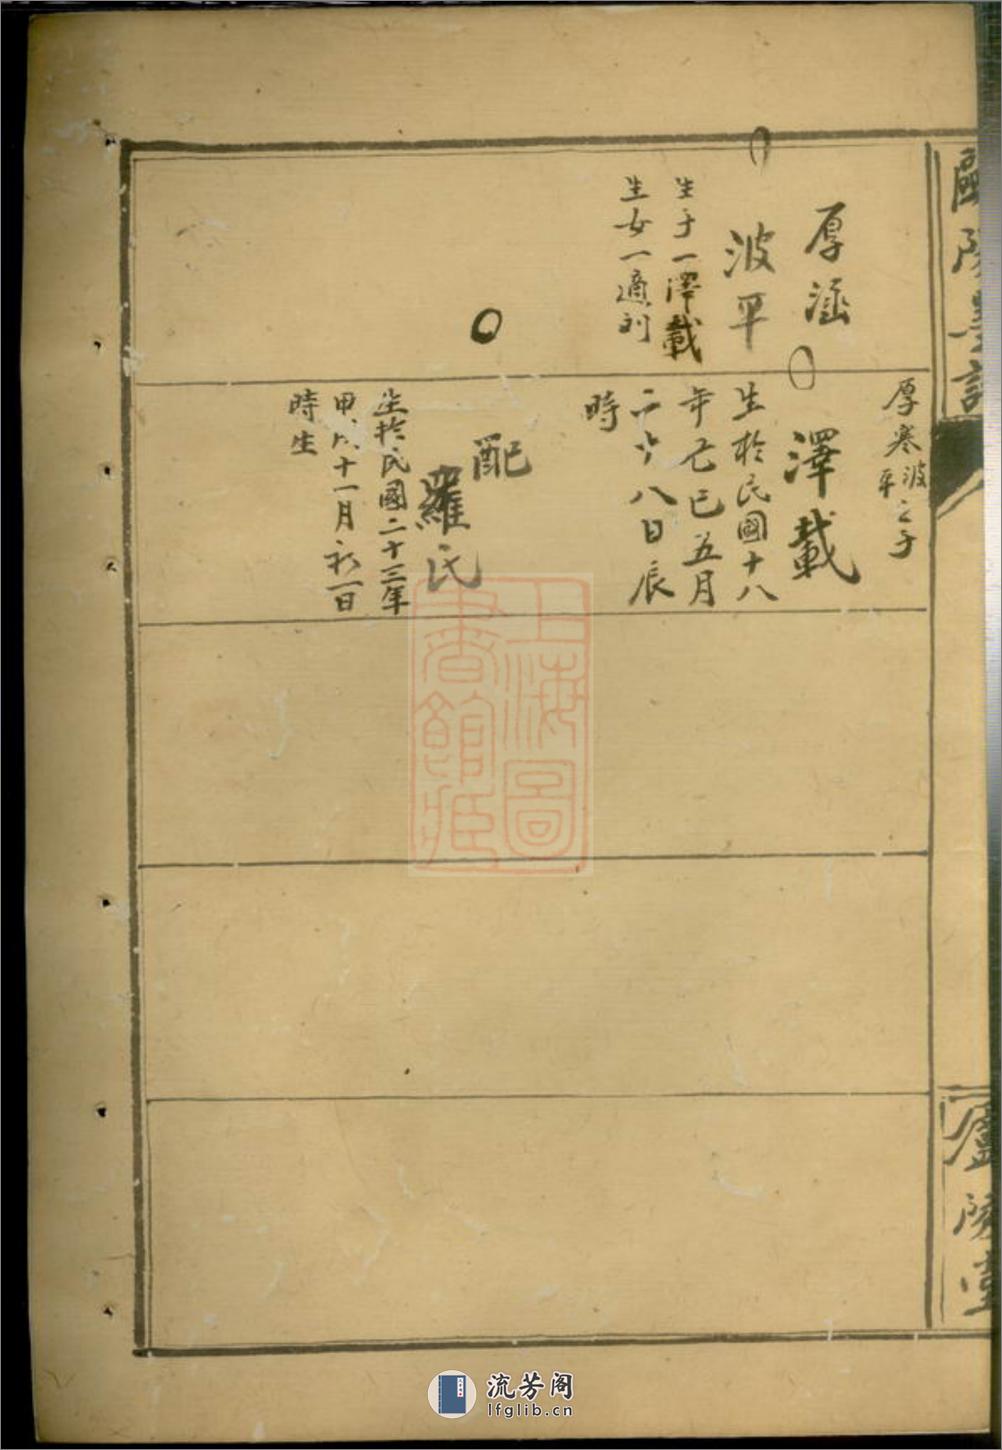 厚涵
波平
生子一澤載
生女一適刘
厚寒波平之子
澤載
生於民國十八
年己巳五月
二十八日辰
時
配
羅氏
生於民國二十三年
甲戌十一月初一日
時生
廬陵堂
上海圖
書館藏
流芳阁
lfglib.cn